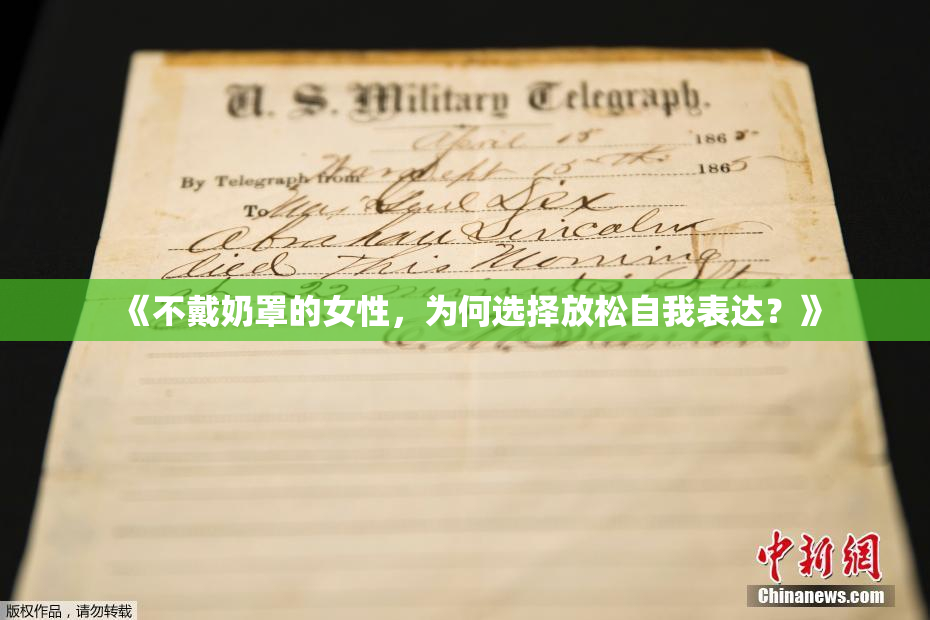 U. S. Military Telegraph.
April 15 1865
By Telegraph from War Dept 15th 1865
To Maj Genl Dix
Abraham Lincoln
died This Morning
at 22 minutes after
《不戴奶罩的女性，为何选择放松自我表达？》
中新網
Chinanews.com
版权作品，请勿转载